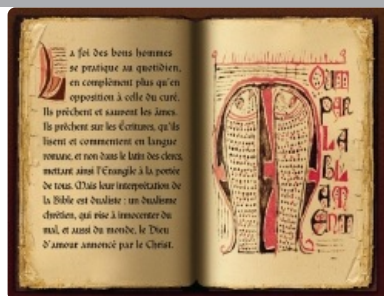 La foi des bons hommes
se pratique au quotidien,
en complément plus qu'en
opposition à celle du curé.
Ils prêchent et sauvent les âmes.
Ils prêchent sur les Écritures, qu'ils
lisent et commentent en langue
romane, et non dans le latin des clercs,
mettant ainsi l'Évangile à la portée
de tous. Mais leur interprétation de
la Bible est dualiste : un dualisme
chrétien, qui vise à innocenter du
mal, et aussi du monde, le Dieu
d'amour annoncé par le Christ.
PAR
LA